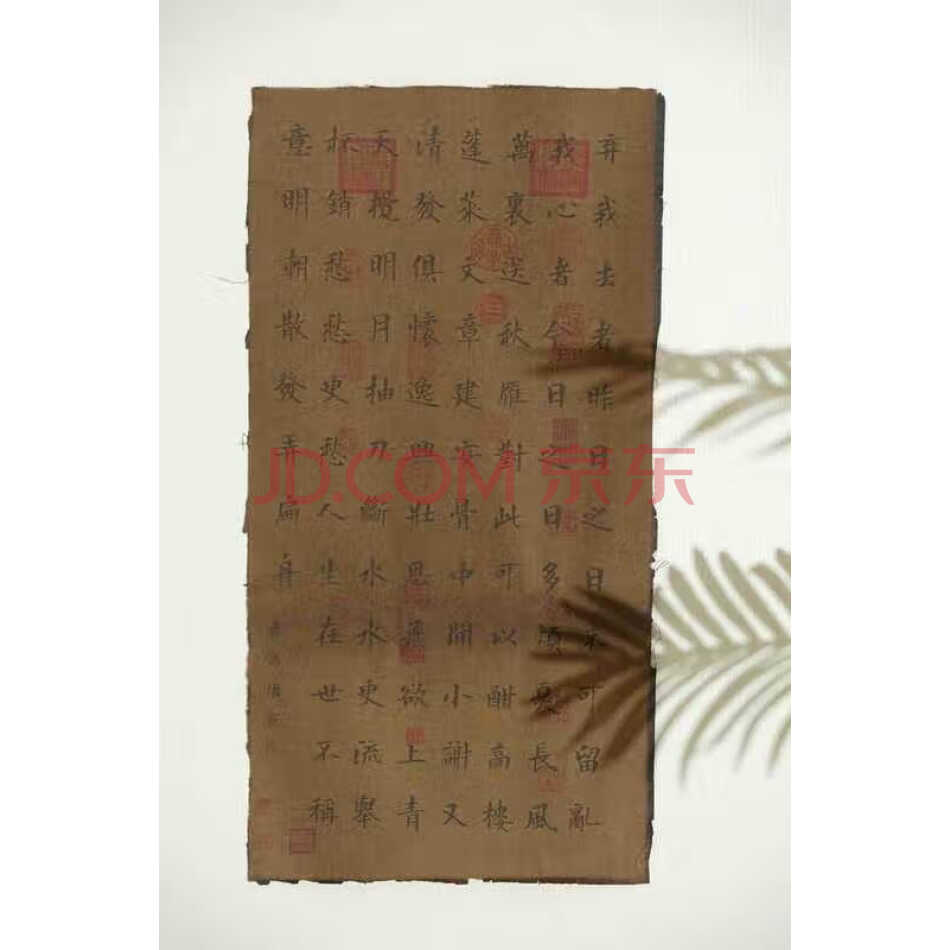 弃我去者昨日之日不可留亂
我心者今日之日多煩憂長風
萬裏送秋雁對此可以酣高樓
蓬萊文章建安骨中間小謝又
清發俱懷逸興壯思飛欲上青
天攬明月抽刀斷水水更流舉
杯銷愁愁更愁人生在世不稱
意明朝散發弄扁舟
JD.COM 京东